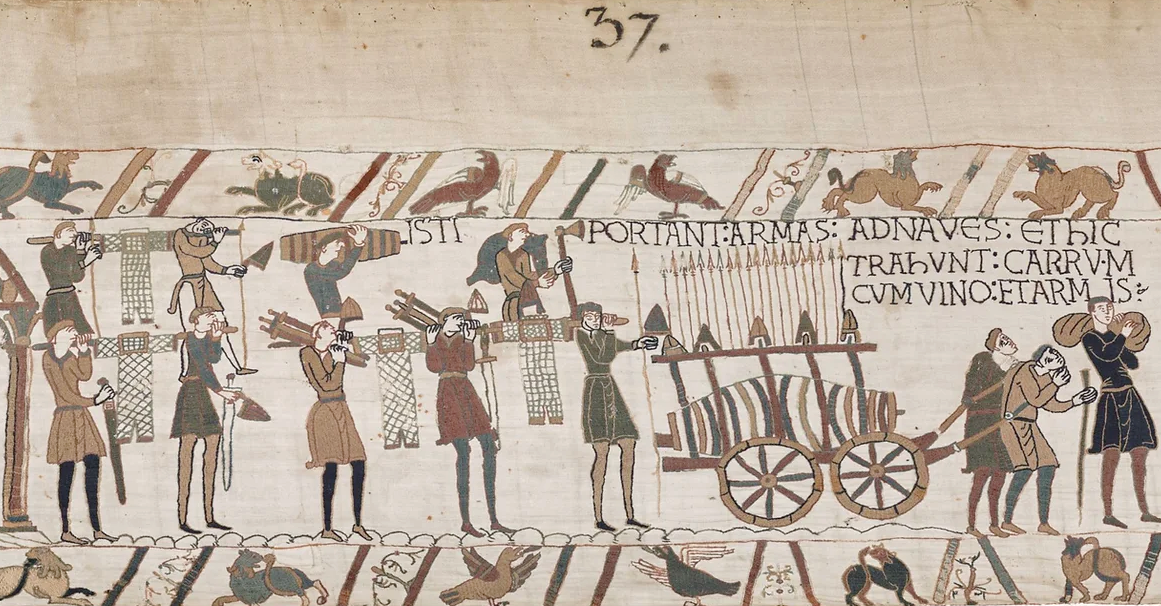 37.
ISTI PORTANT:ARMAS: ADNAVES: EThIC
TRAhVNT:CARRVM
CVMVINO:ETARMIS: